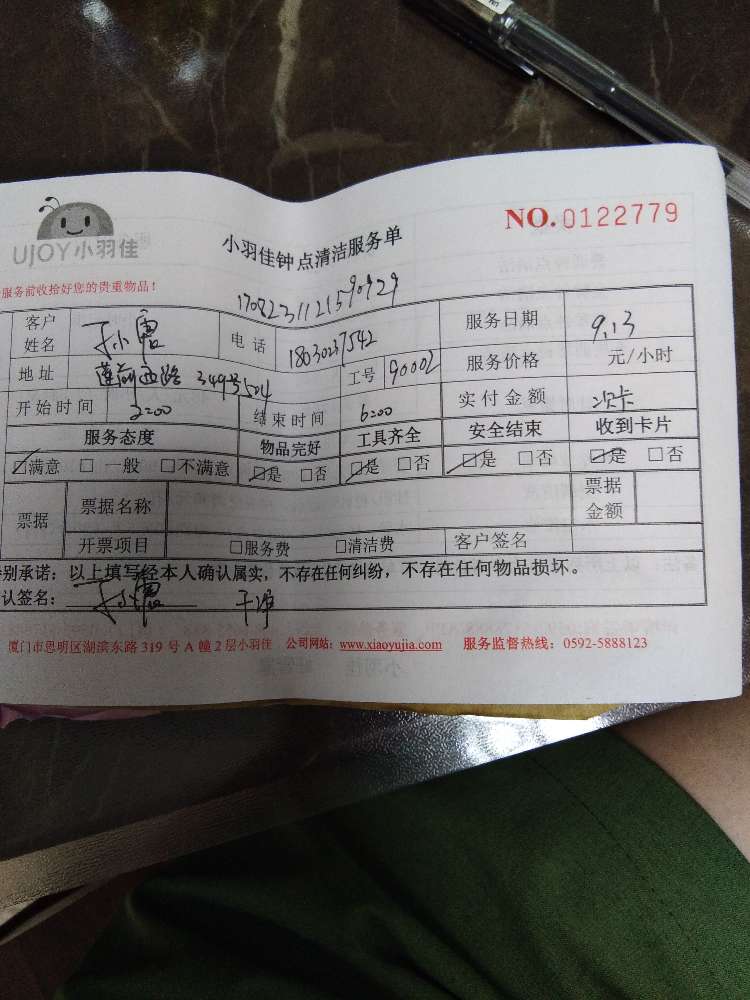 UJOY小羽佳
小羽佳钟点清洁服务单
NO.0122779
服务前收拾好您的贵重物品！
客户姓名 电话 18030237542 服务日期 9.13
地址 莲前西路 349号504 工号 90002 服务价格 元/小时
开始时间 2:00 结束时间 6:00 实付金额 次卡
服务态度 物品完好 工具齐全 安全结束 收到卡片
☑满意 □一般 □不满意 ☑是 □否 ☑是 □否 ☑是 □否 ☑是 □否
票据 票据名称 票据金额
开票项目 □服务费 □清洁费 客户签名
别承诺：以上填写经本人确认属实，不存在任何纠纷，不存在任何物品损坏。
认签名： 干净
厦门市思明区湖滨东路 319 号 A 幢 2 层小羽佳 公司网站：www.xiaoyujia.com 服务监督热线：0592-5888123